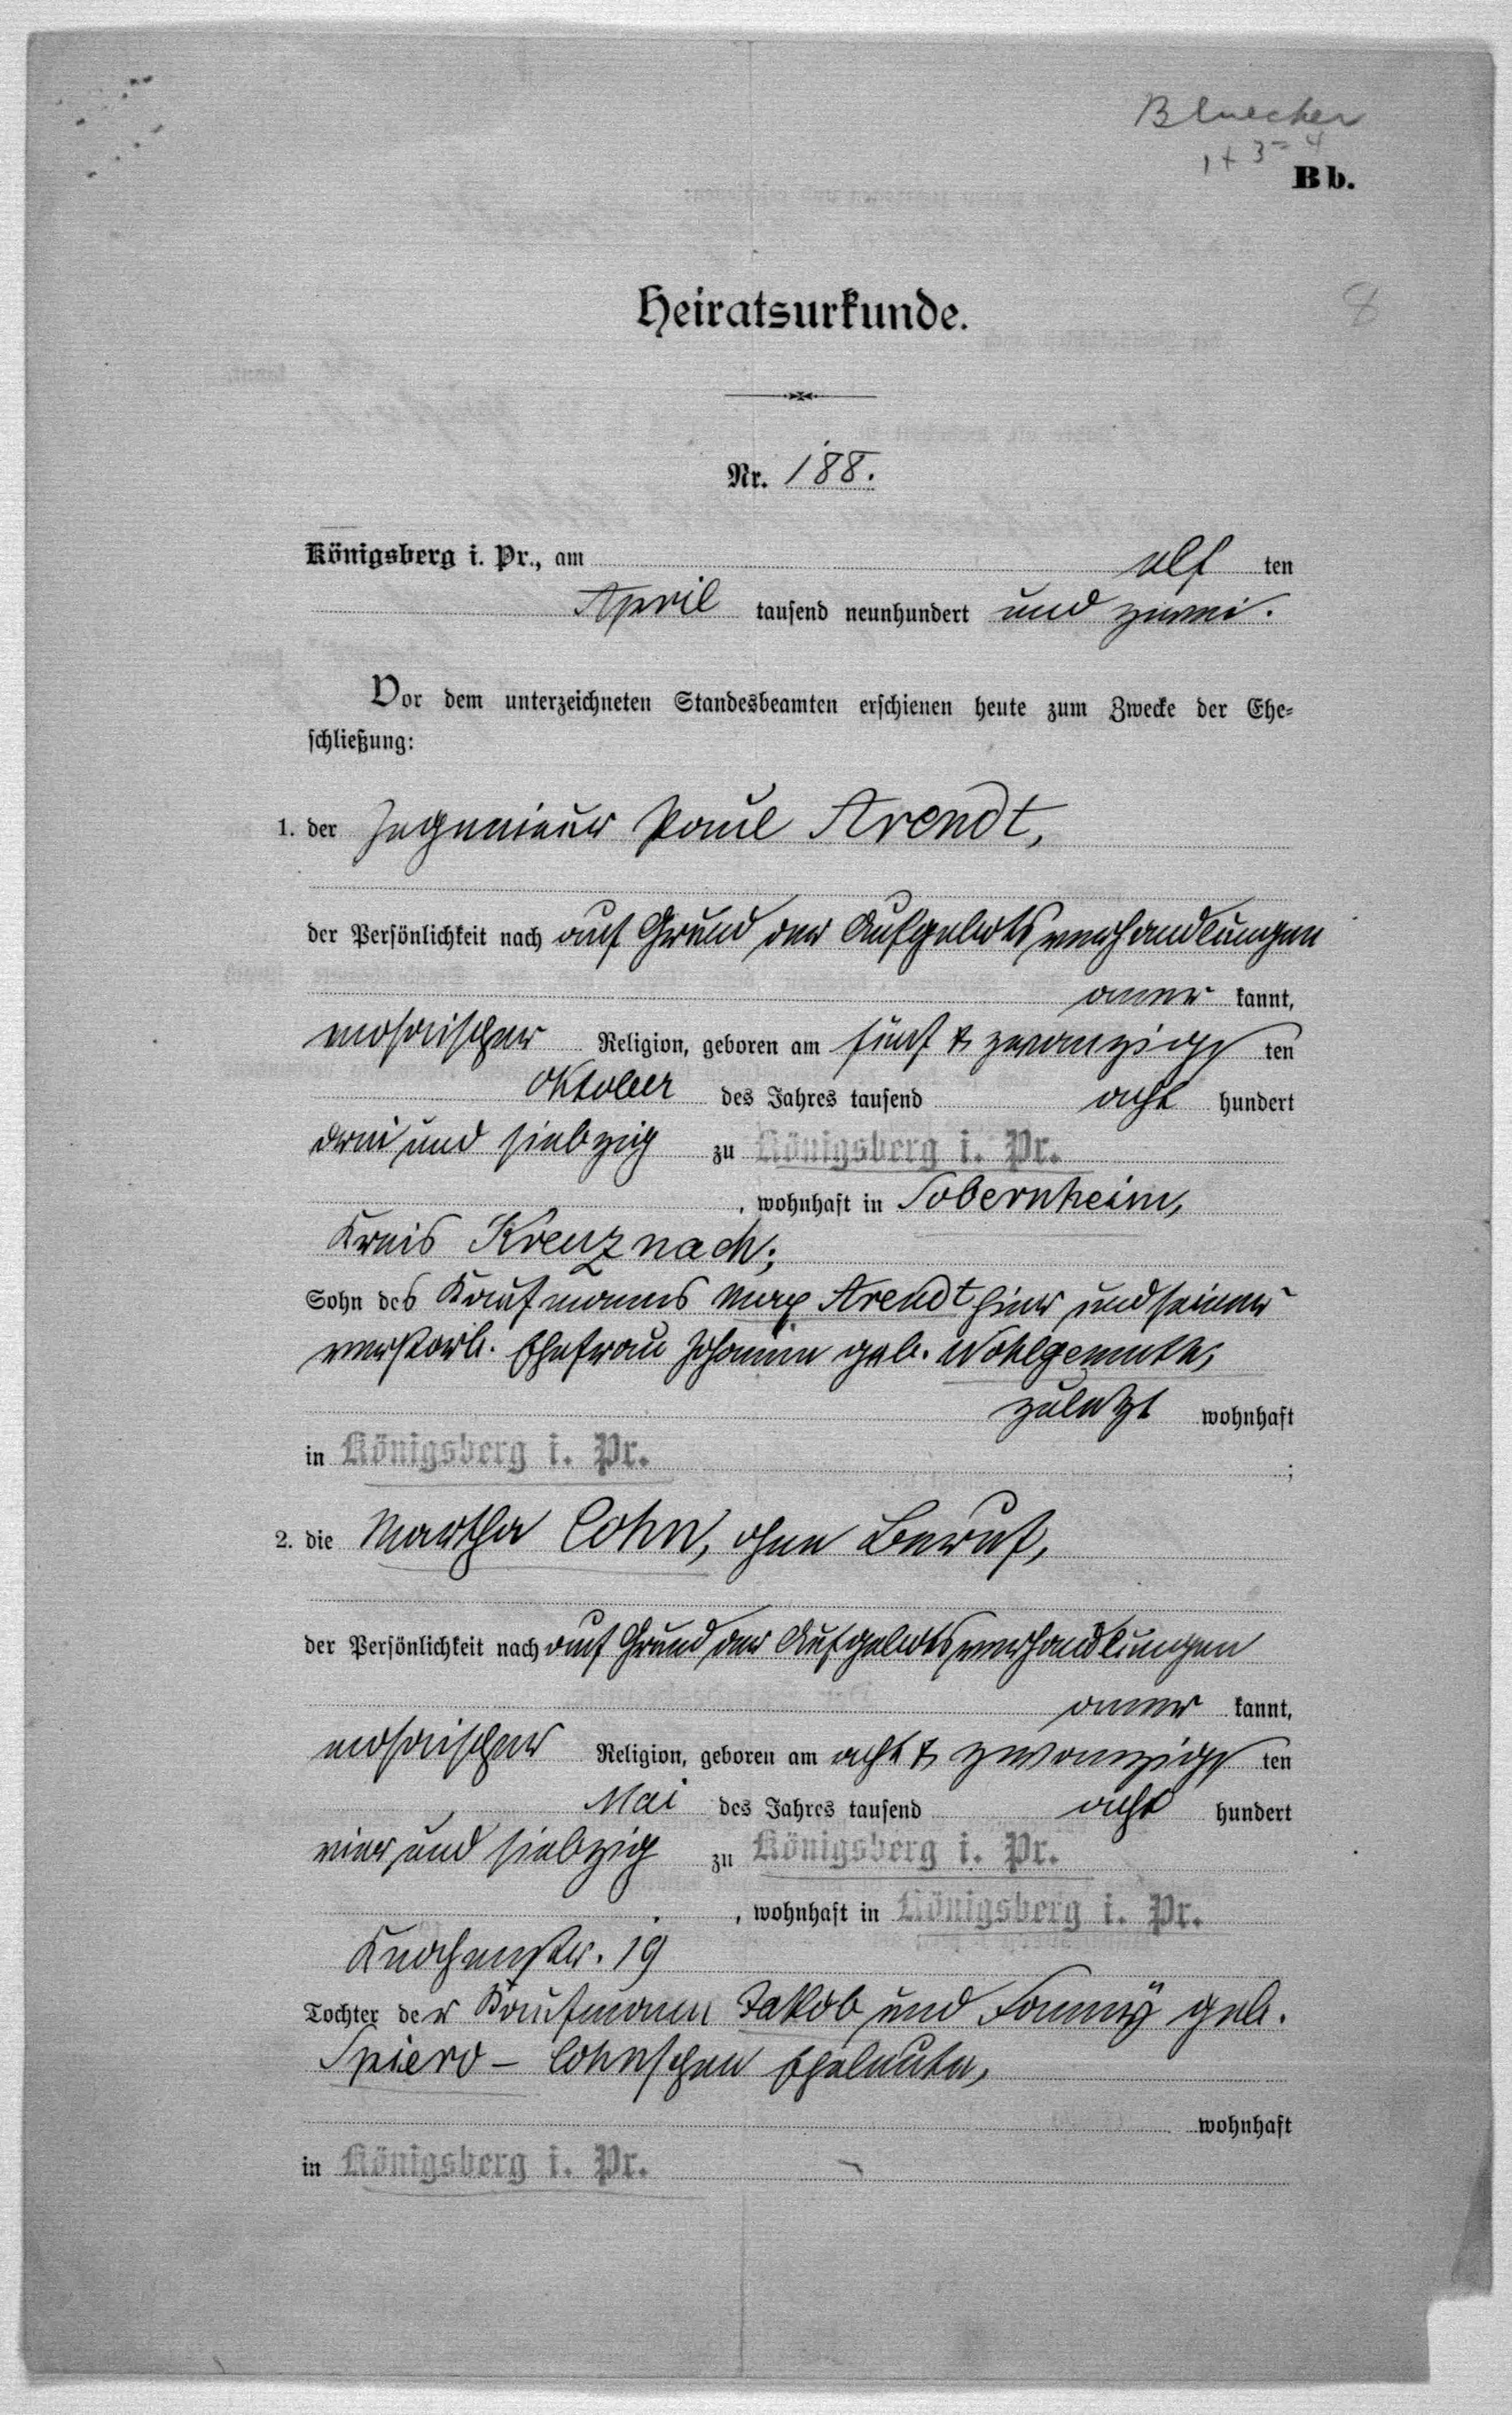 Bluecher
1 + 3 = 4
Bb.
Heiratsurkunde.
8
Nr. 188.
Königsberg i. Pr., am elf ten
April tausend neunhundert und zwei.
Vor dem unterzeichneten Standesbeamten erschienen heute zum Zwecke der Ehe-
schließung:
1. der Ingenieur Paul Arendt,
der Persönlichkeit nach auf Grund der Aufgebotsverhandlungen
aner kannt,
mosaischer Religion, geboren am fünf & zwanzigs ten
Oktober des Jahres tausend acht hundert
drei und siebzig zu Königsberg i. Pr.
, wohnhaft in Sobernheim,
Kreis Kreuznach;
Sohn des Kaufmanns Max Arendt hier und seiner
verstorb. Ehefrau Johanna geb. Wohlgemuth,
zuletzt wohnhaft
in Königsberg i. Pr. ;
2. die Martha Cohn, ohne Beruf,
der Persönlichkeit nach auf Grund der Aufgebotsverhandlungen
aner kannt,
mosaischer Religion, geboren am acht & zwanzigs ten
Mai des Jahres tausend acht hundert
vier und siebzig zu Königsberg i. Pr.
, wohnhaft in Königsberg i. Pr.
Knochenstr. 19
Tochter der Kaufmann Jakob und Fanny geb.
Spiero - Cohnschen Eheleute,
wohnhaft
in Königsberg i. Pr.